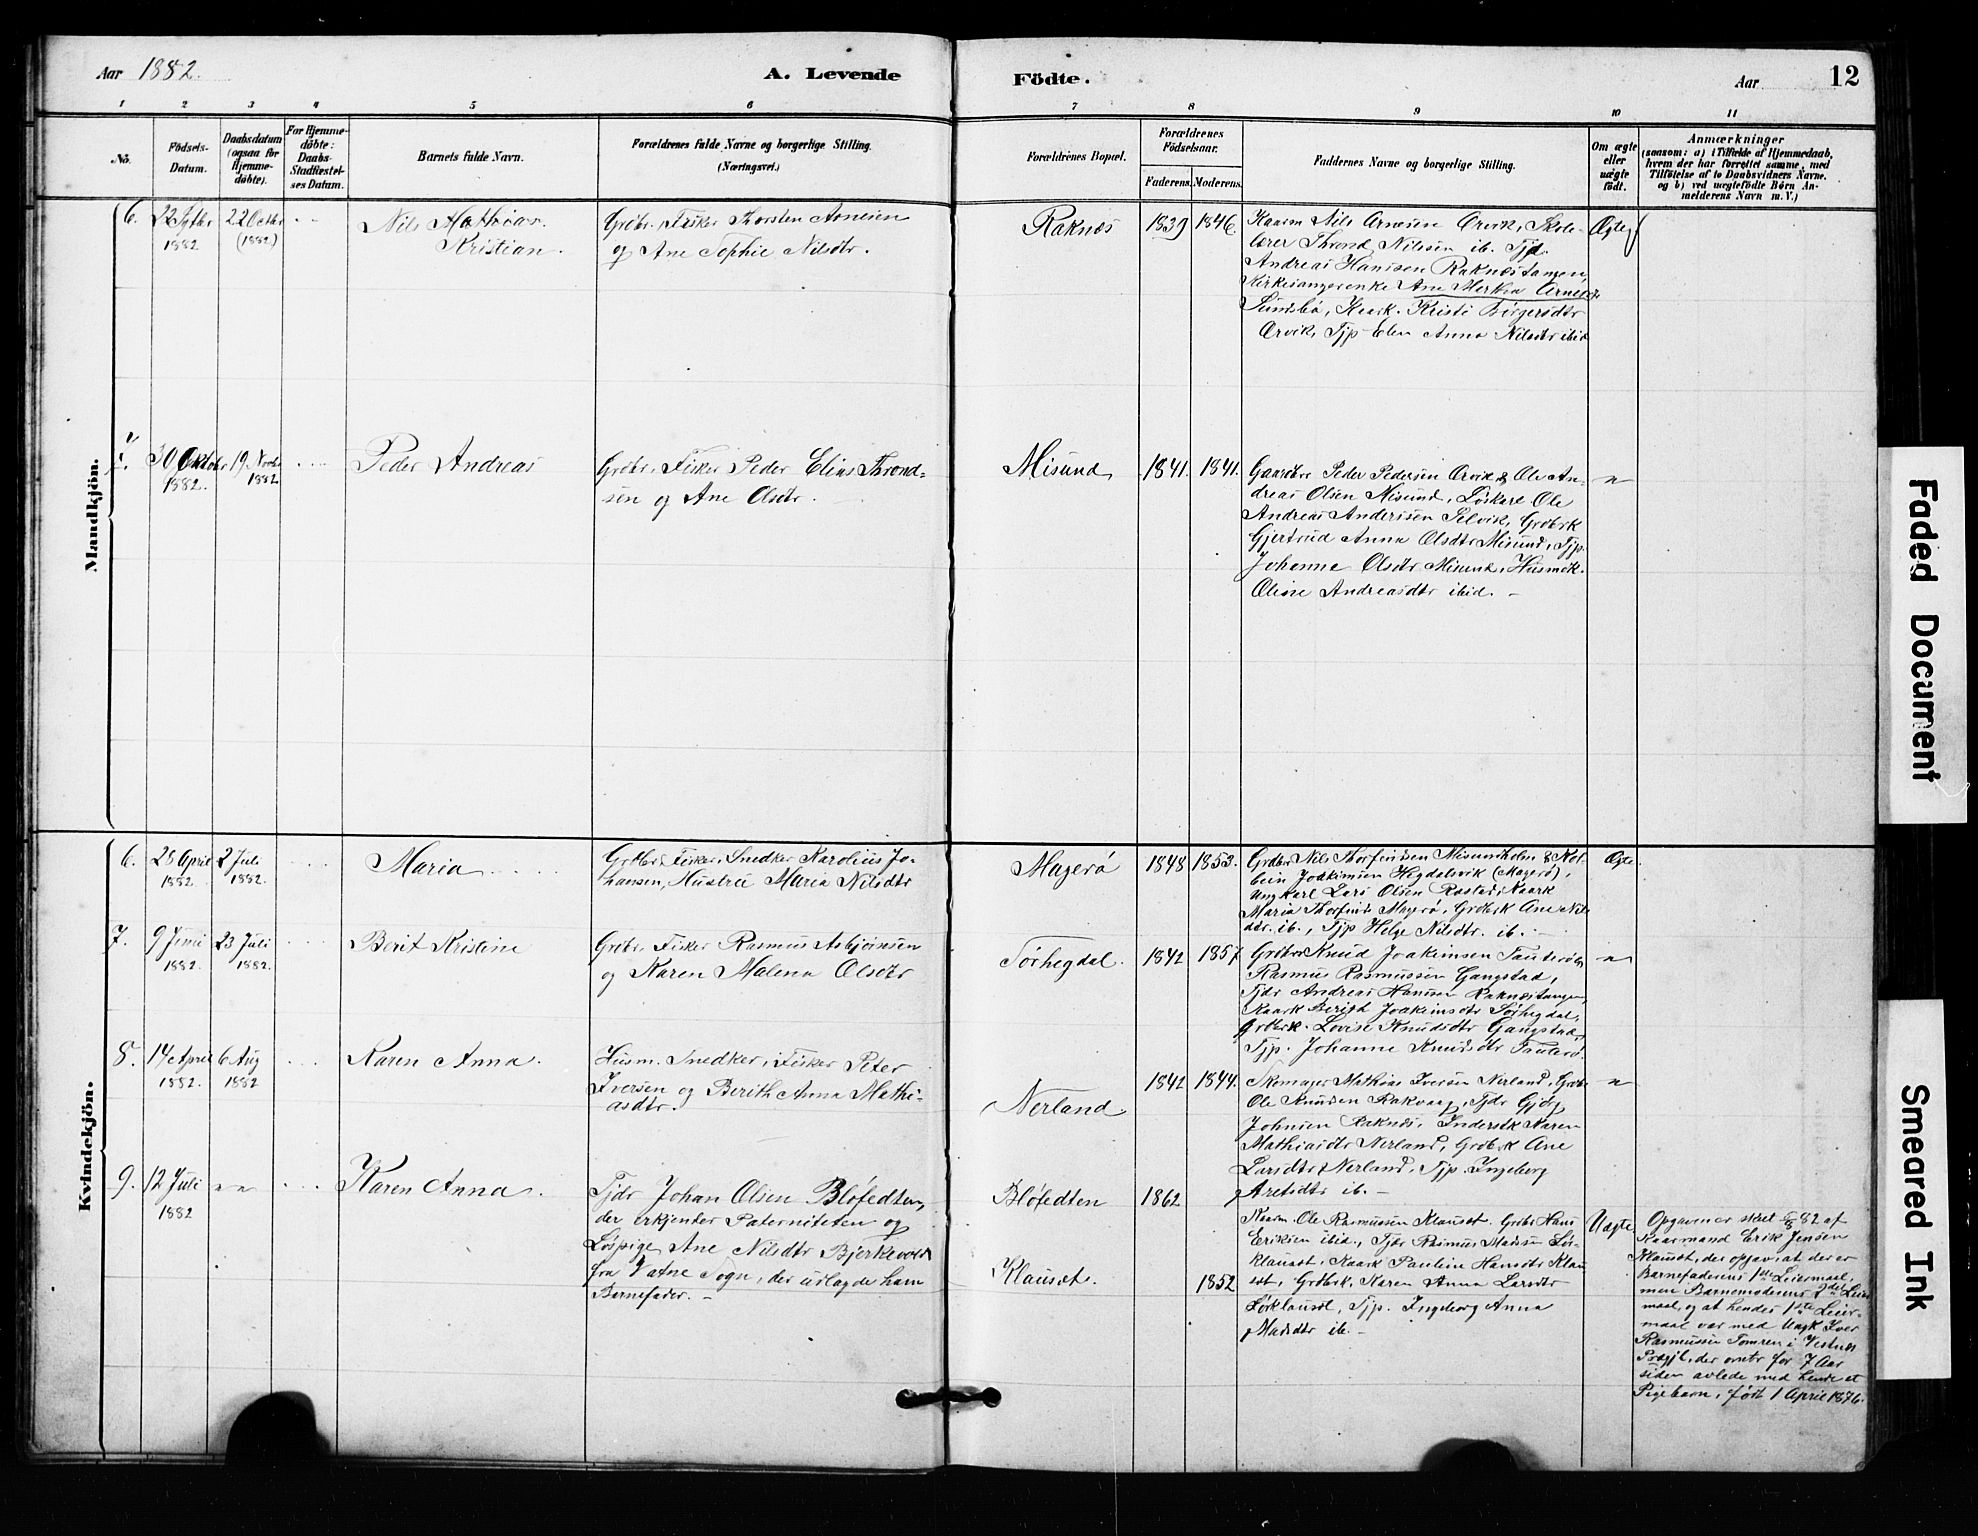 Aar 1882.
A. Levende
Födte.
Aar
12
1 2 3 4 5 6 7 8 9 10 11
No.
Födsels-
Datum.
Daabsdatum
(ogsaa for
Hjemme-
döbte).
For Hjemme-
döbte:
Daabs-
Stadfæstel-
ses Datum.
Barnets fulde Navn.
Forældrenes fulde Navne og borgerlige Stilling.
(Næringsvei.)
Forældrenes Bopæl.
Forældrenes
Födselsaar.
Faderens. Moderens.
Faddernes Navne og borgerlige Stilling.
Om ægte
eller
uægte
födt.
Anmærkninger
(saasom: a) i Tilfælde af Hjemmedaab,
hvem der har forrettet samme, med
Tilföielse af to Daabsvidners Navne,
og b) ved uægtefödte Börn An-
melderens Navn m. V.)
Mandkjön.
6.
22 Septbr
1882
22 Octbr
(1882)
Nils Mathias
Kristian.
Grdbr. Fisker Thorsten Arnesen
og Ane Sophie Nilsdtr.
Raknæs
1839
1846.
Kaarm Nils Arnesen Ørvik, Skole-
lærer Thrond Nilssen ib. Tjd.
Andreas Hanssen Raknæstangen,
Kirkesangerenke Ane Martha Arnesdtr
Sundsbø, Kaark. Kristi Børgersdtr
Ørvik, Tjp Elen Anna Nilsdtr ibid
Ægte
7.
30 Oktobr
1882.
19 Novbr
1882
Peder Andreas
Grdbr. Fisker Peder Elias Thrond-
sen og Ane Olsdtr.
Misund
1841.
1841.
Gaardbr Peder Pedersen Ørvik & Ole An-
dreas Olsen Misund, Løskarl Ole
Andreas Anderssen Selvik, Grdbrk
Gjertrud Anna Olsdtr Misund, Tjp.
Johanne Olsdtr Misund, Husmdk.
Oline Andreasdtr ibid. –
"
Kvindekjön.
6.
28 April
1882
2 Juli
1882.
Maria
Grdbr Fisker, Snedker Karolius Jo-
hansen, Hustru Maria Nilsdtr
Magerø
1848
1853.
Grdbr Nils Thorfindsen Misundholm & Kol-
bein Joakimsen Hegdalsvik (Magerø),
Ungkarl Lars Olsen Røstad, Kaark
Maria Thorfinds Magerø, Grdbrk Ane Nils
dtr. ib., Tjp Helge Nilsdtr. ib. –
Ægte
7.
9 Juni
1882.
23 Juli
1882.
Berit Kristine
Grdbr. Fisker Rasmus Asbjørnsen
og Karen Malena Olsdtr
Sørhegdal.
1842
1857.
Grdbr Knud Joakimsen Tauterøen
Rasmus Rasmussen Gangstad,
Tjdr Andreas Hanssen Raknæstangen,
Kaark Berith Joakimsdtr Sørhegdal,
Grdbrk. Lovise Knudsdtr Gangstad
Tjp. Johanne Knudsdtr Tauterø.
"
8.
14 April
1882.
6 Aug
1882
Karen Anna.
Husm. Snedker, Fisker Peter
Iversen og Berith Anna Mathi-
asdtr.
Nerland
1842
1844.
Skomager Mathias Iversen Nerland, Grdbr
Ole Knudsen Rakvaag, Tjdr Gjørg
Johnsen Raknæs, Inderstk Karen
Mathiasdtr Nerland, Grdbrk Ane
Larsdtr Nerland, Tjp. Ingeborg
Aretsdtr ib. –
"
9.
12 Juli
1882
" "
Karen Anna.
Tjdr Johan Olsen Bløfedten,
der erkjender Paterniteten og
Løspige Ane Nilsdtr Bjerkevold
fra Vatne Sogn, der udlagde ham
Barnefader. –
Bløfedten
Klauset.
1862
1852
Kaarm Ole Rasmussen Klauset. Grdbr Hans
Eriksen ibid., Tjdr Rasmus Madsen Lør-
klauset, Kaark Pauline Hansdtr Klau
set, Grdbrk. Karen Anna Larsdtr
Lørklauset, Tjp. Ingeborg Anna
Madsdtr ib. –
Uægte
Opgaven er skeet 6/8 82 af
Kaarmand Erik Jensen
Klauset, der opgav, at der er
Barnefaderens 1ste Leiermaal,
men Barnemoderens 2det Leier
maal, og at hendes 1ste Leier-
maal var med Ungk Iver
Rasmussen Tomren i Vestnæs
Præstgjld, der omtr for 7 Aar
siden avlede med hende et
Pigebarn, født 1 April 1876.
Faded Document
Smeared Ink